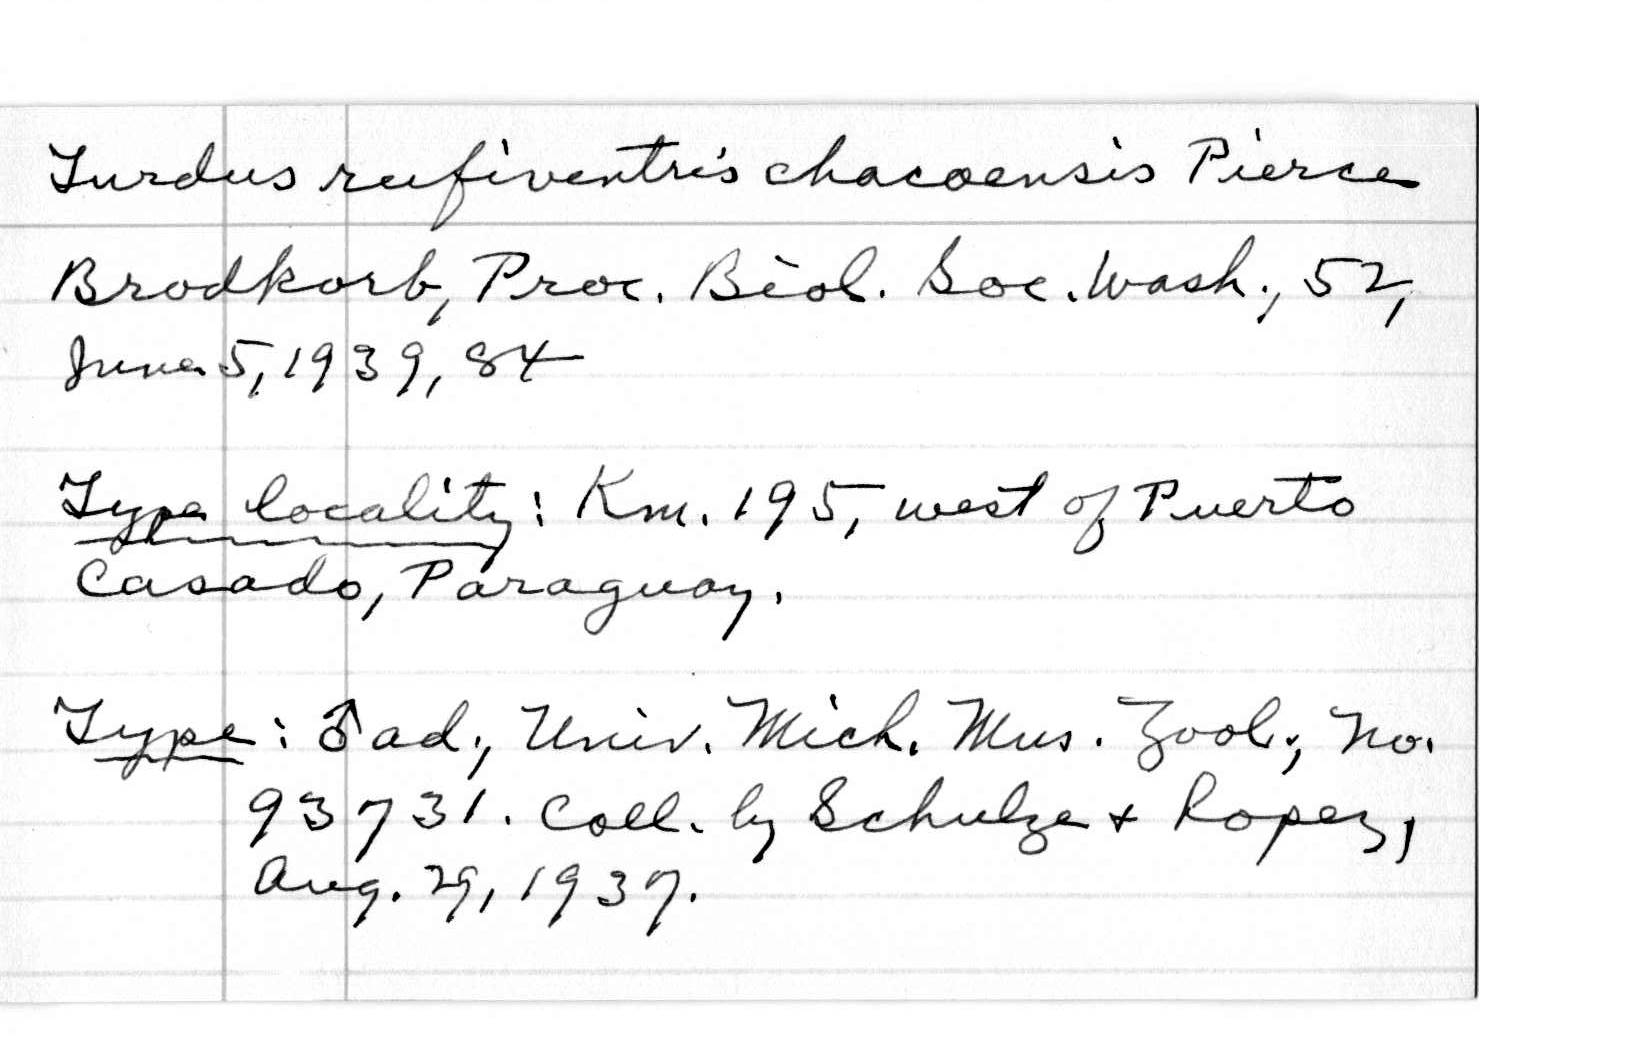 Turdus rufiventris chacoensis Pierce
Brodkorb, Proc. Biol. Soc. Wash., 52,
June 5, 1939, 84
Type locality: Km. 195, west of Puerto
Casado, Paraguay.
Type: ♂ ad., Univ. Mich. Mus. Zool., No.
93731. Coll. by Schulze + Lopez,
Aug. 29, 1937.